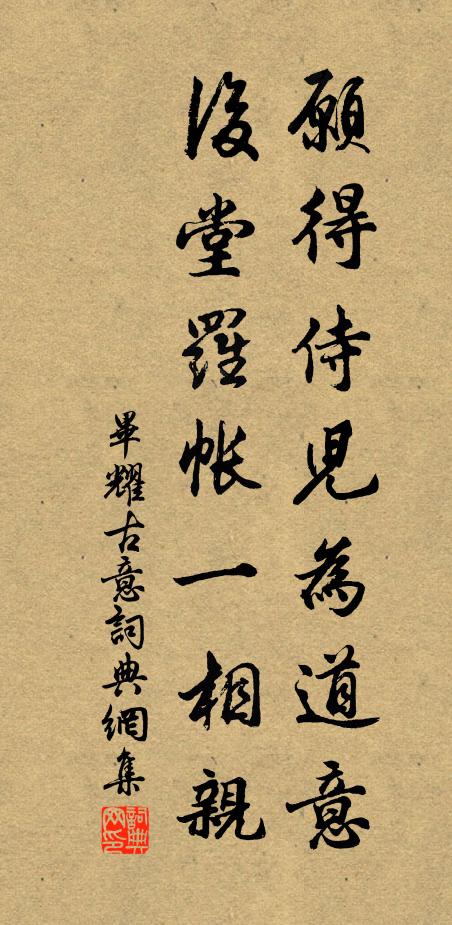 願得侍兒為道意
後堂羅帳一相親
畢耀古意詞典網集
詞典网印